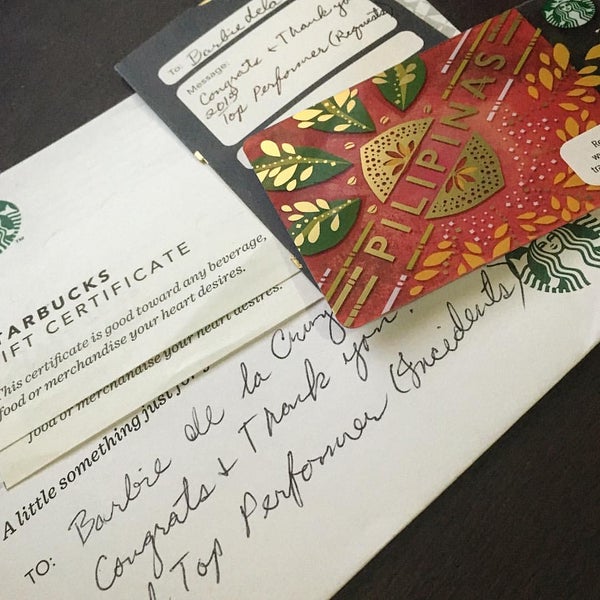 To: Barbie dela
Message:
Congrats & Thank you
2015
Top Performer (Requests
PILIPINAS
STARBUCKS
GIFT CERTIFICATE
This certificate is good toward any beverage,
food or merchandise your heart desires.
food or merchandise your heart desires.
A little something just for
TO: Barbie de la Cruz
Congrats & Thank you!
Top Performer (Incidents)